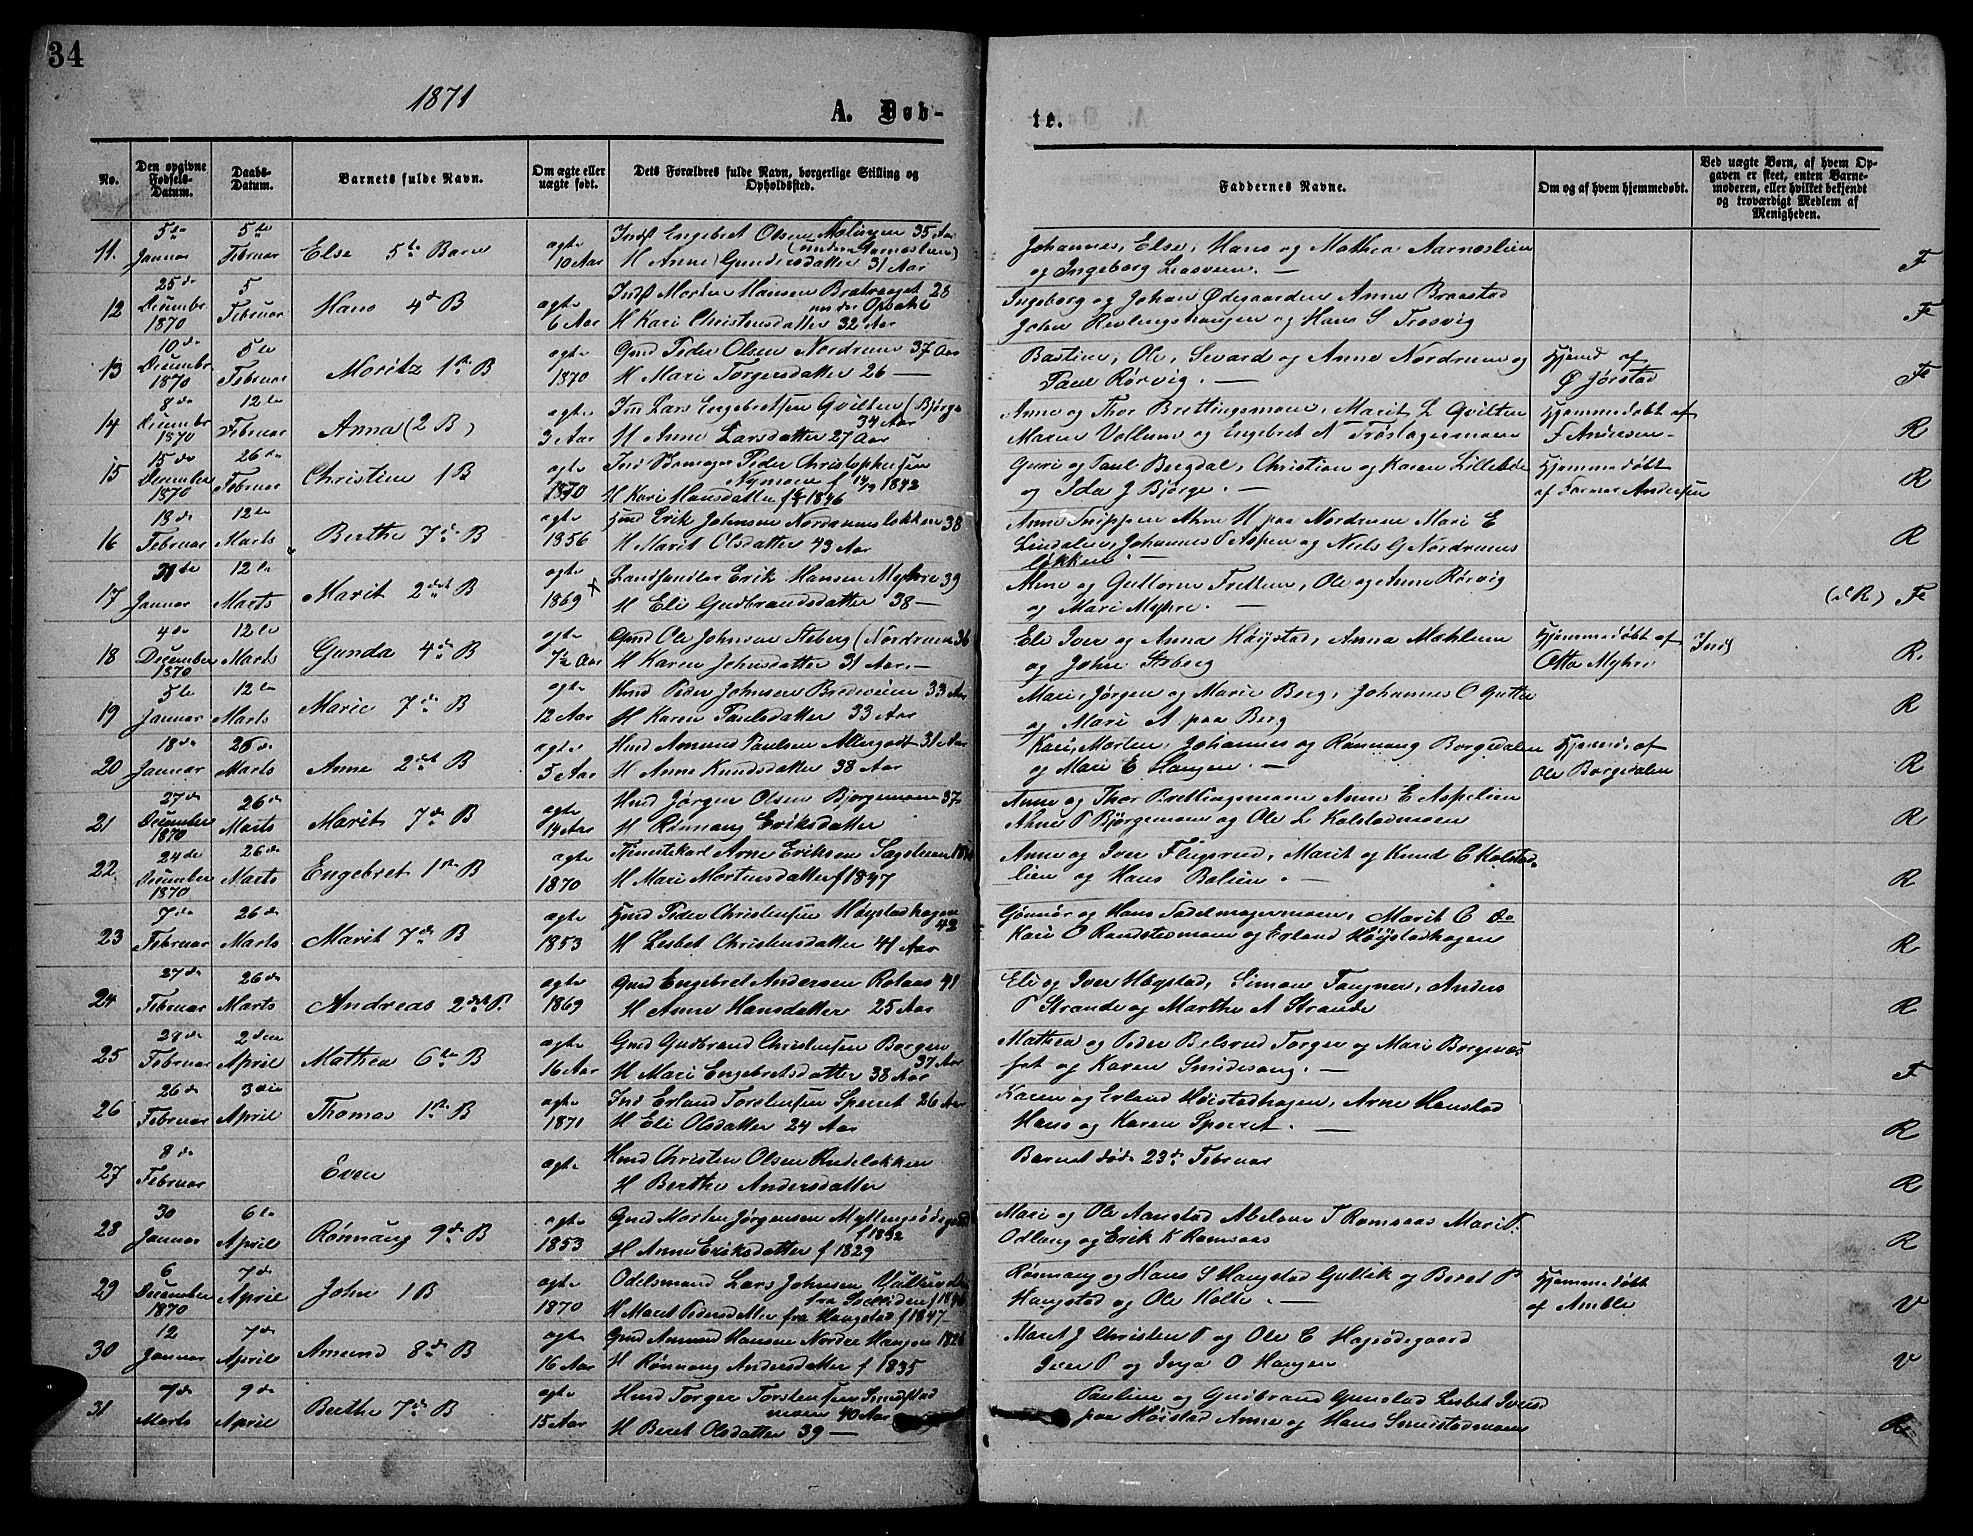 34
1871
A. Døb-
te.
No.
Den opgivne Fødsels-Datum.
Daabs-Datum.
Barnets fulde Navn.
Om ægte eller uægte født.
Dets Forældres fulde Navn, borgerlige Stilling og Opholdssted.
Faddernes Navne.
Om og af hvem hjemmedøbt.
Ved uægte Børn, af hvem Opgaven er skeet, enten Barnemoderen, eller hvilket bekjendt og troværdigt Medlem af Menigheden.
11. 5te Januar 5te Februar Else 5te Barn ægte 10 Aar Inds Engebret Olsen 35 Aar
H Anne Gundersdatter 31 Aar
Johannes, Else, Hans og Mathea Aarneslien
og Ingeborg F
12 25de December 1870 5 Februar Hans 4de B ægte 6 Aar Inds Morten Hansen 28
under Opsahl
H Kari Christensdatter 32 Aar
Ingeborg og Johan Ødegaarden Anne Braastad
John Revlingshaugen og Hans S Trosvig Fr
13 10de December 1870 5te Februar Moritz 1ste B ægte 1870 Gmd Peder Olsen Nordrum 37 Aar
H Mari Torgersdatter 26 —
Bastian, Ole, Sevard og Anne Nordrum og
Paul Rørvig. —
Hjemd af
Ø Jørstad Fr
14 8de December 1870 12te Februar Anna (2 B) ægte 3 Aar Ind Lars Engebretsen Qvilten (Bjørge
34 Aar
H Anne Larsdatter 27 Aar
Anne og Thor Brettingsmoen, Marit L Qvilten
Maren Vollum og Engebret N
Hjemmedøbt af
F Andersen R
15 15de December 1870 26de Februar Christine 1 B ægte 1870 Peder Christophersen
Nymoen f 14/9 1842
H Kari Hansdatter f 1846
Guri og Paul Bergdal, Christian og Karen Lillebøe
og Ida J Bjørge. —
Hjemmedøbt
af Andersen R
16 13de Februar 12te Marts Berthe 7de B ægte 1856 Hmd Erik Johnsen Nordrumsløkken 38
H Marit Olsdatter 43 Aar
Anne Snippen Anne H paa Nordrum Mari E
Lindalen, Johannes P Aspen og Niels G Nordrums
løkken R
17 31te Januar 12te Marts Marit 2det B ægte 1869 Landhandler Erik Hansen Myhre 39
H Eli Gudbrandsdatter 38 —
Anne og Guttorm Fretten, Ole og Anne Rørvig
og Mari Myhre. — (R) Fr
18 4de December 1870 12te Marts Gunda 4de B ægte 7½ Aar Gmd Ole Johnsen Steberg (Nordrum 36
H Karen Johnsdatter 31 Aar. —
Eli Iver og Anna Høystad, Anna Mahlum
og John Steberg
Hjemmedøbt af
Otto Myhre Inds R.
19 5te Januar 12te Marts Marie 7de B ægte 12 Aar Hmd Peder Johnsen Bredeveien 33 Aar
H Karen Paulsdatter 33 Aar
Mari, Jørgen og Marie Berg, Johannes O
og Mari A paa Berg R
20 18de Januar 26de Marts Anne 2det B ægte 5 Aar Hmd Amund Paulsen Altergodt 31 Aar
H Anne Knudsdatter 38 Aar
Kari, Morten, Johannes og Rønnaug Borgedalen
og Mari E Haugen. —
Hjemd. af
Ole Borgedalen R
21 27de December 1870 26de Marts Marit 7de B ægte 14 Aar Hmd Jørgen Olsen Bjørgemoen 37
H Rønnaug Eriksdatter
Anne og Thor Brettingsmoen Anne E Aspelien
Anne P Bjørgemoen og Ole L Kolstadmoen R
22 24de December 1870 26de Marts Engebret 1ste B ægte 1870 Tjenestekarl Arne Eriksen Sagstuen
H Mari Mortensdatter f 1847
Anne og Iver Flugsrud, Marit og Knud C Kolstad-
lien og Hans Bolien. R
23 7de Februar 26de Marts Marit 7de B ægte 1853 Hmd Peder Christensen Høystadhagen
42
H Lisbet Christensdatter 41 Aar
Gønnør og Hans Sadelmagermoen, Marit C do
Kari O Randstadmoen og Erland Høystadhagen R
24 27de Februar 26de Marts Andreas 2det B. ægte 1869 Gmd Engebret Andersen Rolaas 41
H Anne Hansdatter 25 Aar
Eli og Iver Høystad, Simon Taugner, Anders
P Strande og Marthe A Strande R
25 28de Februar 2den April Mathea 6te B ægte 16 Aar Gmd Gudbrand Christensen Borgen
37 Aar
H Mari Engebretsdatter 38 Aar
Mathea og Peder Belsrud Torger og Mari
og Karen Smidesang. — F
26 26de Februar 3die April Thomas 1ste B ægte 1871 Ind Erland Torstensen Sperret 26 Aar
H Eli Olsdatter 24 Aar
Karen og Erland Høistadhagen, Arne Hanstad
Hans og Karen Sperret. — R
27 8de Februar Even ægte Hmd Christen Olsen Rudeløkken
H Berthe Andersdatter
Barnet døde 23de Februar R
28 30 Januar 6te April Rønnaug 9de B ægte 1853 Gmd Morten Jørgensen Myllingsødegaard
f 1832
H Anne Eriksdatter f 1829
Mari og Ole Aanstad Abelone T Ramsaas Mari P.
Odlaug og Erik K Ramsaas R
29 6 December 1870 7de April John 1 B ægte 1870 Odelsmand Lars Johnsen
H Marit Pedersdatter fra Haugstad f 1847.
Rønnaug og Hans S Haugstad Gullik og Beret P
Haugstad og Ole Kolbu. —
Hjemmedøbt
af Amble V
30 12 Januar 7de April Amund 8de B ægte 16 Aar Gmd Amund Hansen Nordre Haugen 1826
H Rønnaug Andersdatter f 1835
Marit J Christen P og Ole E Hagsødegaard
Iver P og Inga O Haugen V
31 7de Marts 9de April Berthe 7de B ægte 15 Aar Hmd Torger Torstensen Smedstad
moen 40 Aar
H Beret Olsdatter 39 —
Pauline og Gudbrand Gunstad Lisbet
paa Høistad Anne og Hans Smedstadmoen R